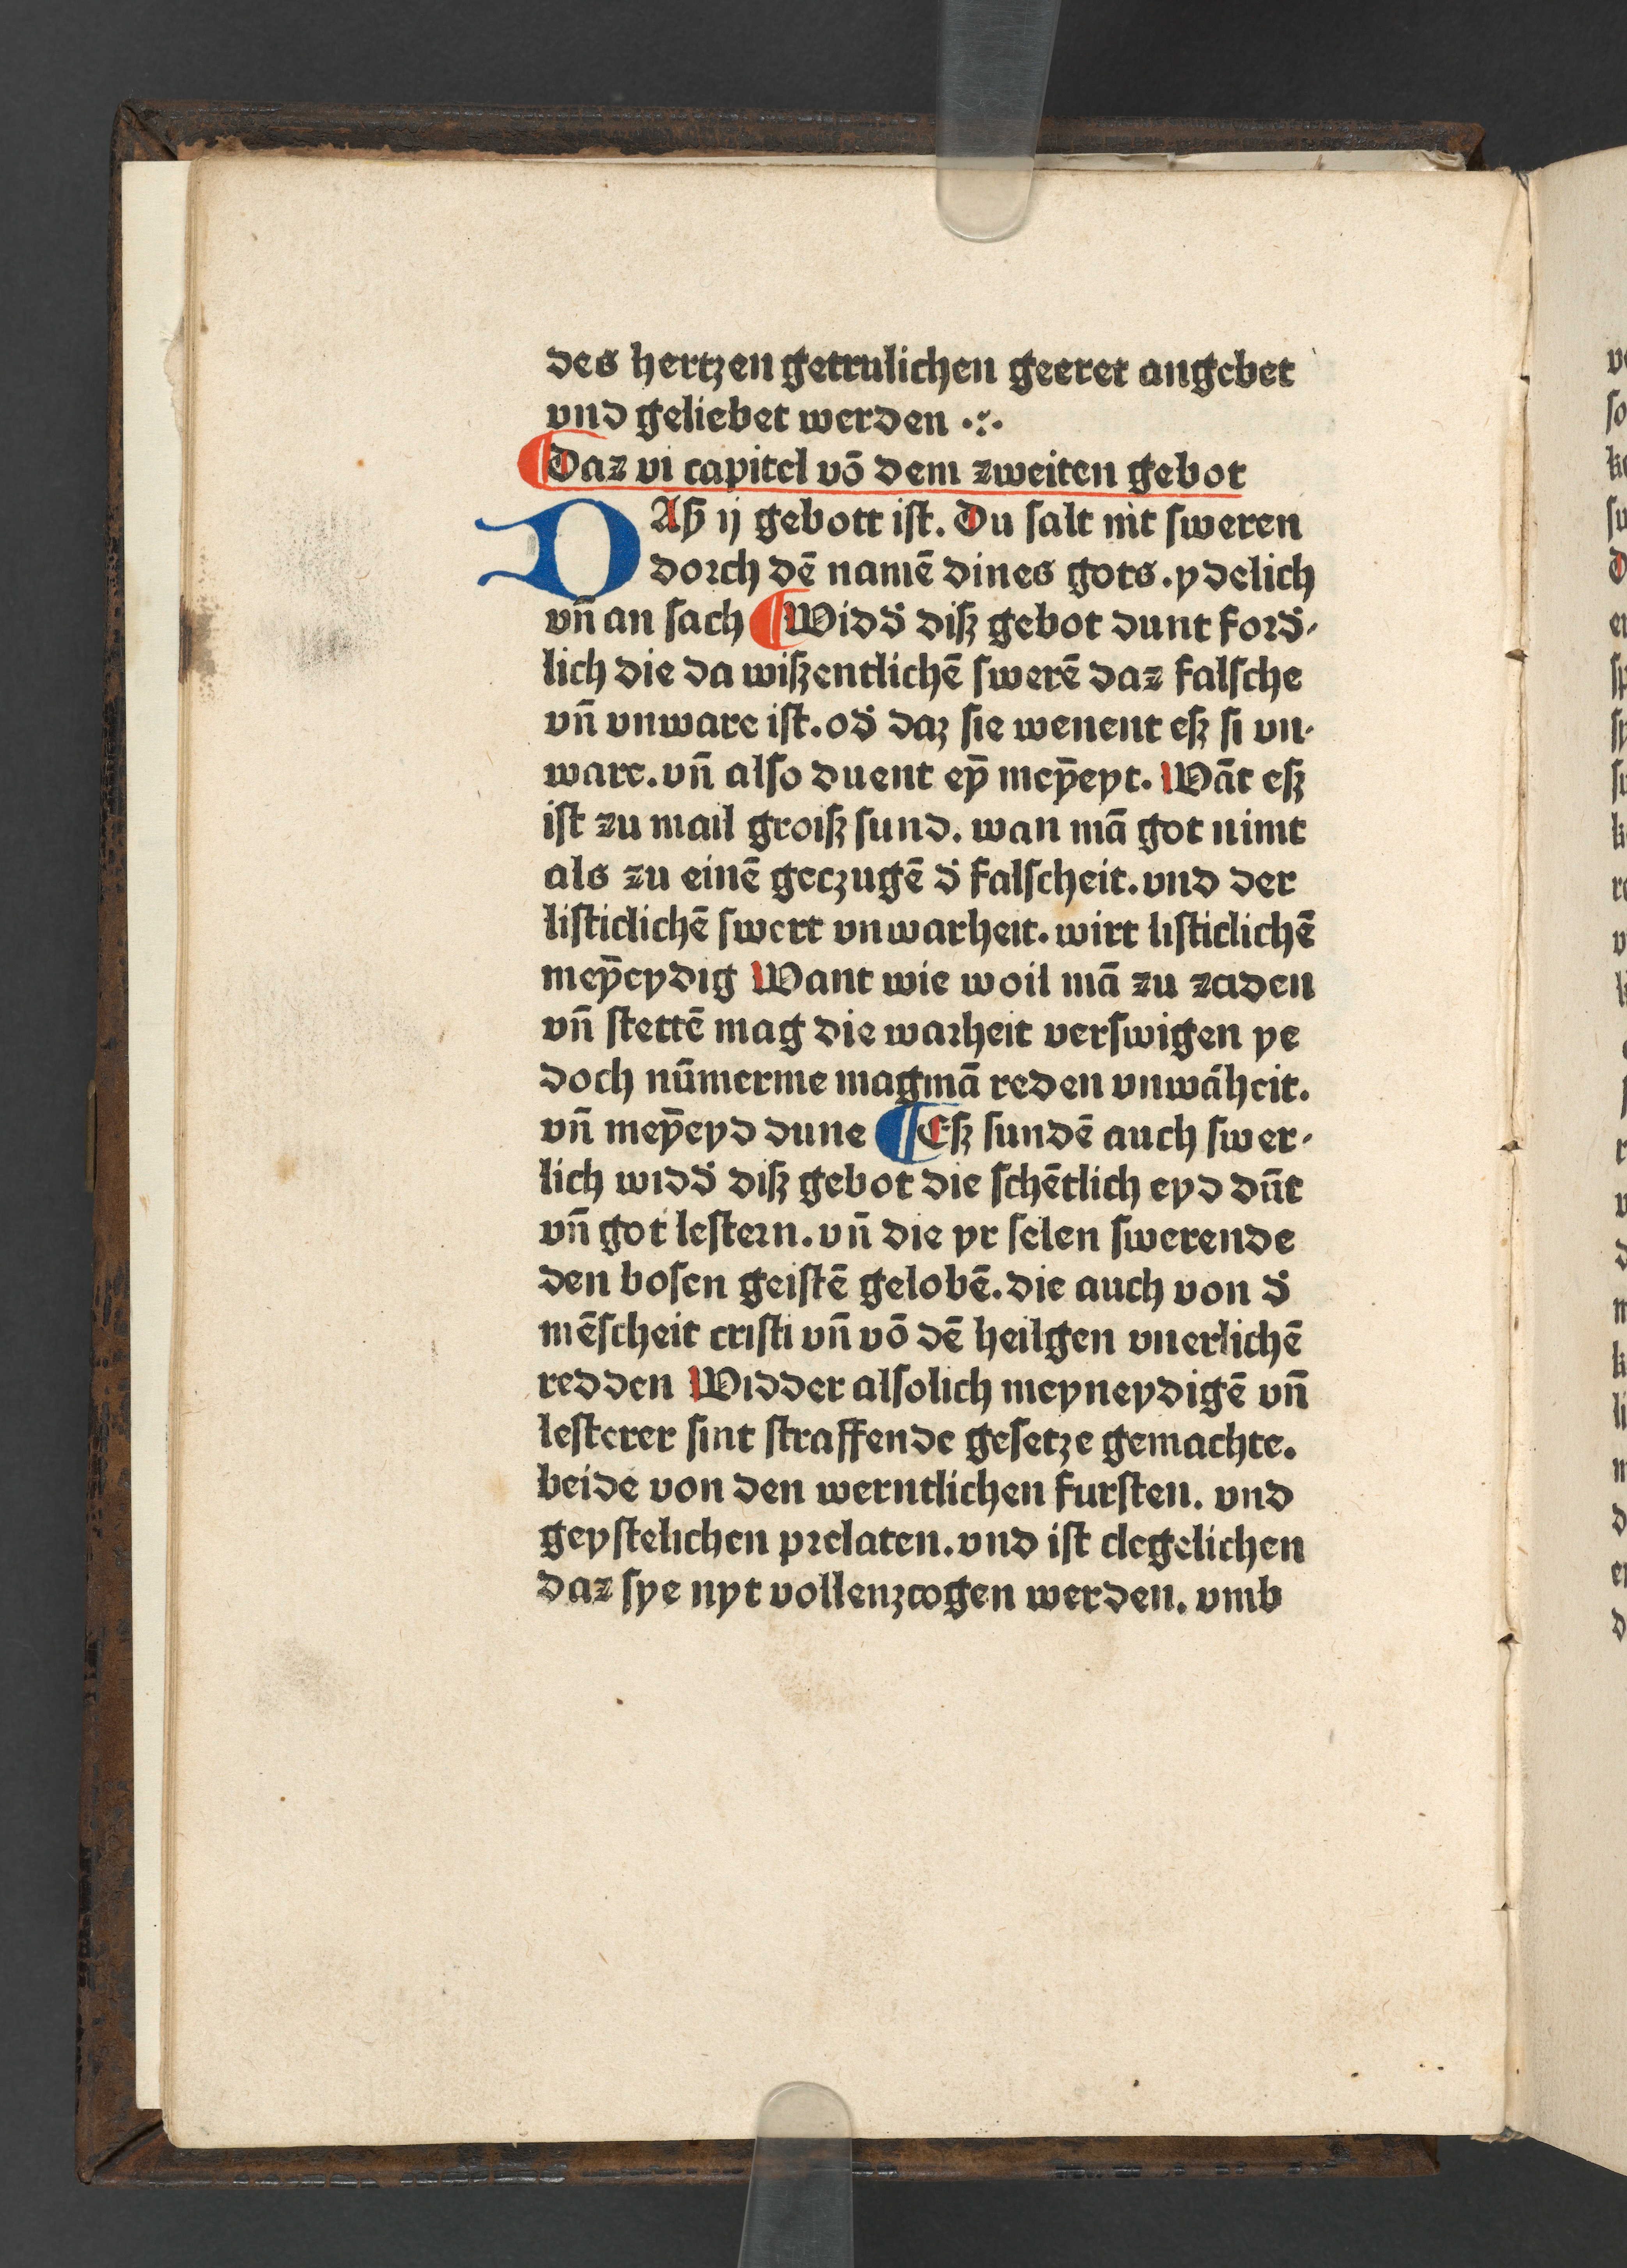 des hertzen getrulichen geeret angebet
vnd geliebet werden ·:·
¶ Daz vi capitel võ dem zweiten gebot
DAſz ij gebott iſt. Du ſalt nit ſweren
dorch dẽ namẽ dines gots. ydelich
vñ an ſach ¶ Widd᷑ diſz gebot dunt ford᷑⸗
lich die da wiſzentlichẽ ſwerẽ daz falſche
vñ vnware iſt. od᷑ daz ſie wenent eſz ſi vn⸗
ware. vñ alſo duent eyͫ̄ meyͫ̄eyt. Wãt eſz
iſt zu mail groiſz ſund. wan mã got nimt
als zu einẽ geczugẽ d᷑ falſcheit. vnd der
liſticlichẽ ſwert vnwarheit. wirt liſticlichẽ
meȳeydig Want wie woil mã zu zciden
vñ ſtettẽ mag die warheit verſwigen ye
doch nūmerme magmã reden vnwãheit.
vñ meȳeyd dune ¶ Eſz ſundẽ auch ſwer⸗
lich widd᷑ diſz gebot die ſchẽtlich eyd dūt
vñ got leſtern. vñ die yr ſelen ſwerende
den boſen geiſtẽ gelobẽ. die auch von d᷑
mẽſcheit criſti vñ võ dẽ heilgen vnerlichẽ
redden Widder alſolich meyneydigẽ vñ
leſterer ſint ſtraffende geſetze gemachte.
beide von den werntlichen furſten. vnd
geyſtelichen prelaten. vnd iſt clegelichen
daz ſye nyt vollenzcogen werden. vmb